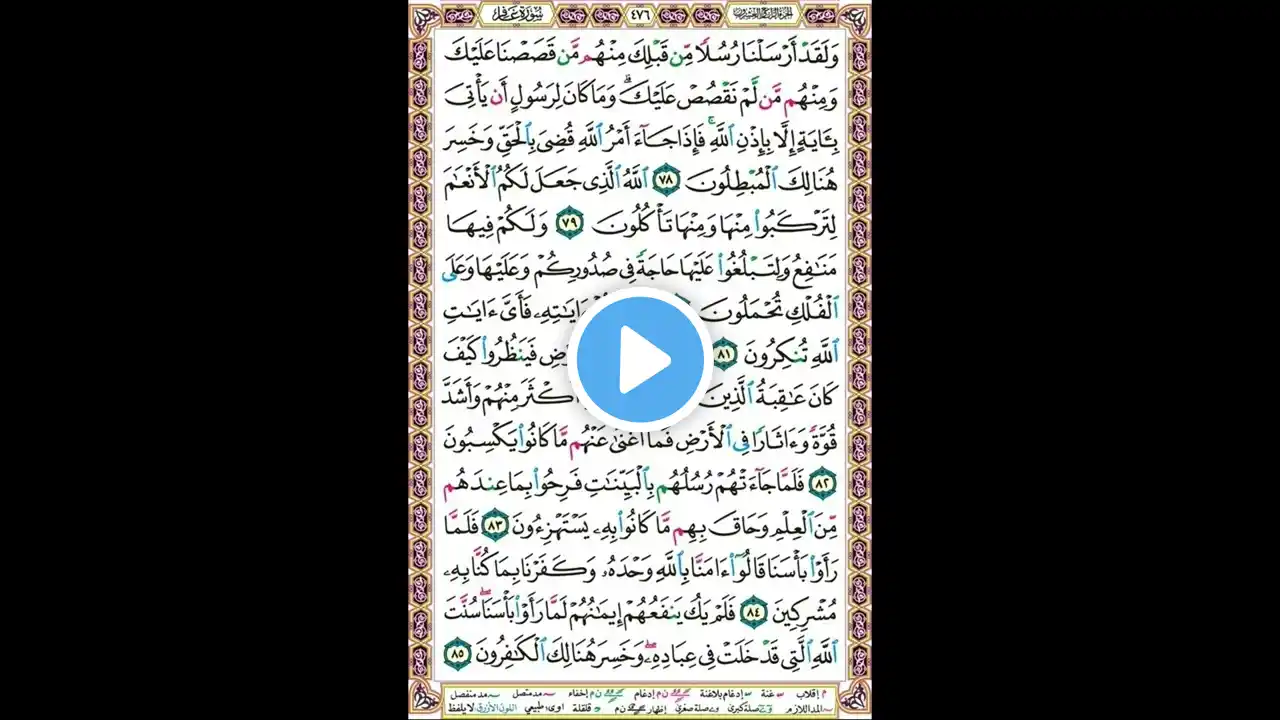 سُورَةُ غَافِر
٤٧٦
الجزء الرابع والعشرون
وَلَقَدْ أَرْسَلْنَا رُسُلًا مِّن قَبْلِكَ مِنْهُم مَّن قَصَصْنَا عَلَيْكَ
وَمِنْهُم مَّن لَّمْ نَقْصُصْ عَلَيْكَ ۗ وَمَا كَانَ لِرَسُولٍ أَن يَأْتِىَ
بِـَٔايَةٍ إِلَّا بِإِذْنِ ٱللَّهِ ۚ فَإِذَا جَآءَ أَمْرُ ٱللَّهِ قُضِىَ بِٱلْحَقِّ وَخَسِرَ
هُنَالِكَ ٱلْمُبْطِلُونَ ٧٨ ٱللَّهُ ٱلَّذِى جَعَلَ لَكُمُ ٱلْأَنْعَٰمَ
لِتَرْكَبُوا۟ مِنْهَا وَمِنْهَا تَأْكُلُونَ ٧٩ وَلَكُمْ فِيهَا
مَنَٰفِعُ وَلِتَبْلُغُوا۟ عَلَيْهَا حَاجَةً فِى صُدُورِكُمْ وَعَلَيْهَا وَعَلَى
ٱلْفُلْكِ تُحْمَلُونَ ءَايَٰتِهِۦ فَأَىَّ ءَايَٰتِ
ٱللَّهِ تُنكِرُونَ ٨١ فَيَنظُرُوا۟ كَيْفَ
كَانَ عَٰقِبَةُ ٱلَّذِينَ أَكْثَرَ مِنْهُمْ وَأَشَدَّ
قُوَّةً وَءَاثَارًا فِى ٱلْأَرْضِ فَمَآ أَغْنَىٰ عَنْهُم مَّا كَانُوا۟ يَكْسِبُونَ
٨٢ فَلَمَّا جَآءَتْهُمْ رُسُلُهُم بِٱلْبَيِّنَٰتِ فَرِحُوا۟ بِمَا عِندَهُم
مِّنَ ٱلْعِلْمِ وَحَاقَ بِهِم مَّا كَانُوا۟ بِهِۦ يَسْتَهْزِءُونَ ٨٣ فَلَمَّا
رَأَوْا۟ بَأْسَنَا قَالُوٓا۟ ءَامَنَّا بِٱللَّهِ وَحْدَهُۥ وَكَفَرْنَا بِمَا كُنَّا بِهِۦ
مُشْرِكِينَ ٨٤ فَلَمْ يَكُ يَنفَعُهُمْ إِيمَٰنُهُمْ لَمَّا رَأَوْا۟ بَأْسَنَا ۖ سُنَّتَ
ٱللَّهِ ٱلَّتِى قَدْ خَلَتْ فِى عِبَادِهِۦ ۖ وَخَسِرَ هُنَالِكَ ٱلْكَٰفِرُونَ ٨٥
م إقلاب غنة إدغام بلاغنة ن م إدغام ن م إخفاء مد متصل مد منفصل
المد اللازم صلة كبرى صلة صغرى إظهار ن م قلقلة اوى طبيعي اللون الأزرق لا يلفظ